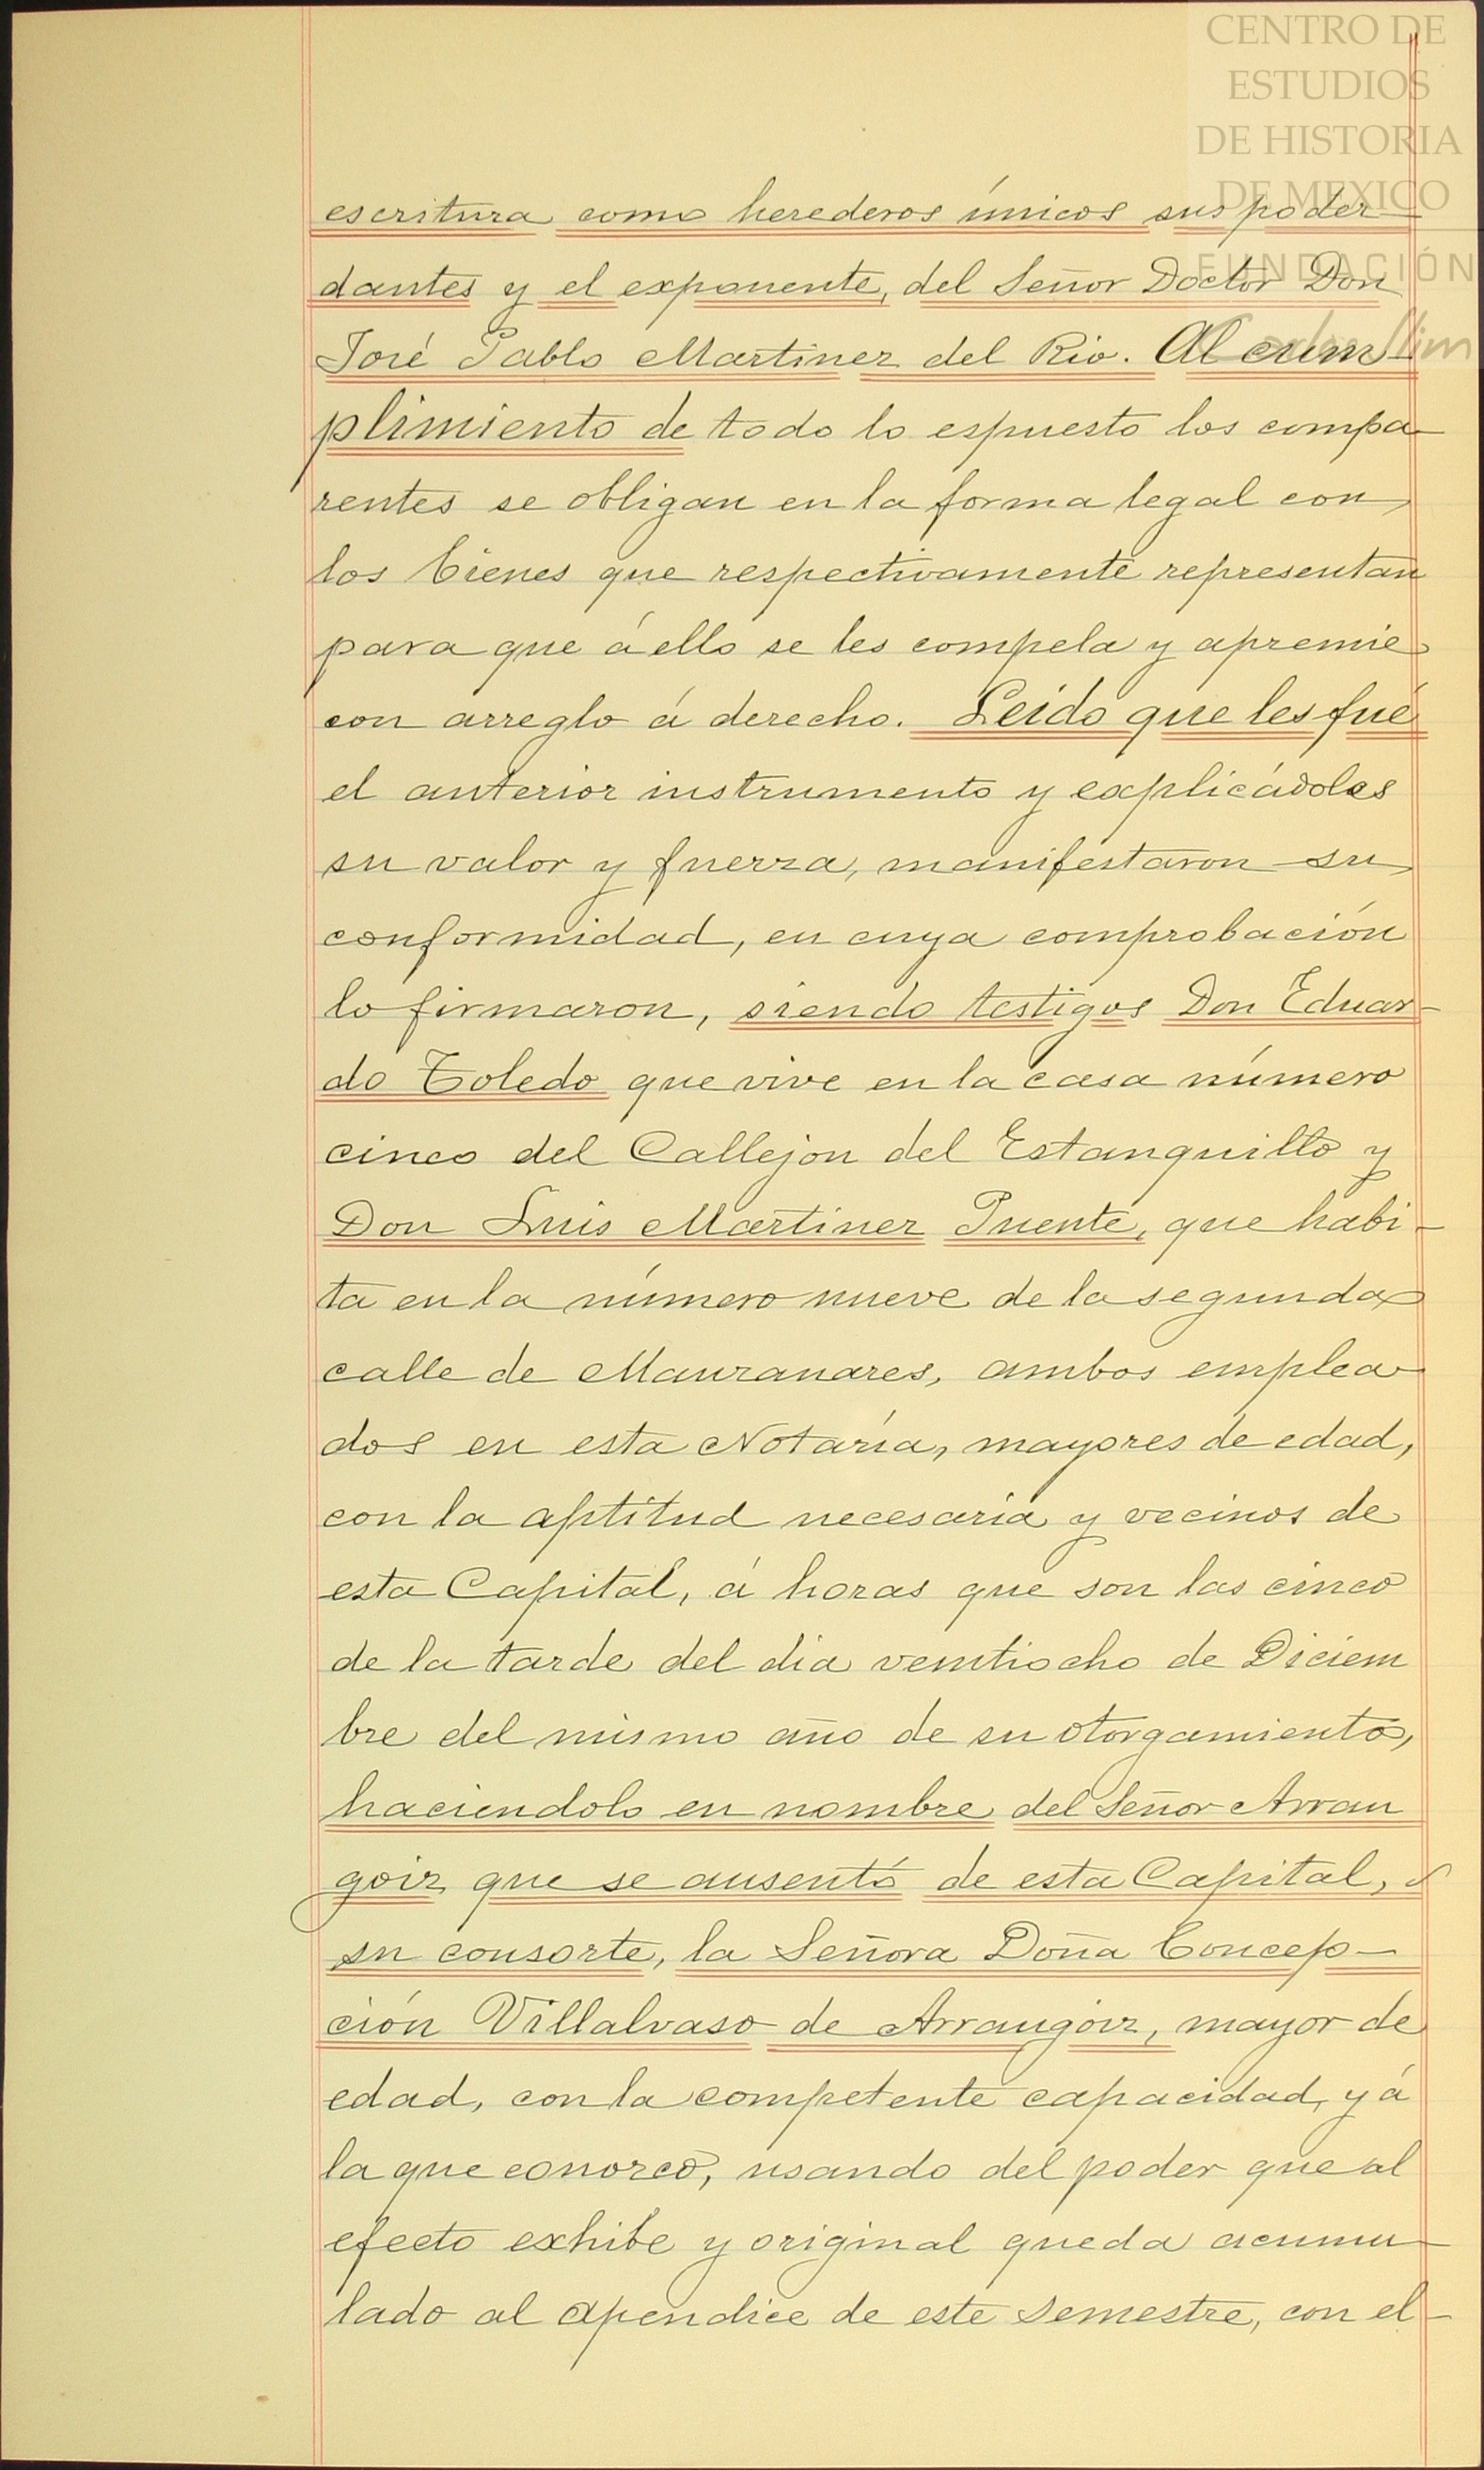 CENTRO DE
ESTUDIOS
DE HISTORIA
DE MEXICO
FUNDACIÓN
Carlos Slim
escritura como herederos únicos sus poder-
dantes y el exponente, del Señor Doctor Don
José Pablo Martinez del Rio. Al cum-
plimiento de todo lo espuesto los compa-
rentes se obligan en la forma legal con
los bienes que respectivamente representan
para que á ello se les compela y apremie
con arreglo á derecho. Leido que les fué
el anterior instrumento y explicádoles
su valor y fuerza, manifestaron su
conformidad, en cuya comprobación
lo firmaron, siendo testigos Don Eduar-
do Toledo que vive en la casa número
cinco del Callejon del Estanquillo y
Don Luis Martinez Puente, que habi-
ta en la número nueve de la segunda
calle de Manzanares, ambos emplea-
dos en esta Notaría, mayores de edad,
con la aptitud necesaria y vecinos de
esta Capital, á horas que son las cinco
de la tarde del dia veintiocho de Diciem
bre del mismo año de su otorgamiento,
haciendolo en nombre del Señor Arran
goiz que se ausentó de esta Capital,
su consorte, la Señora Doña Concep-
ción Villalvaso de Arrangoiz, mayor de
edad, con la competente capacidad, y á
la que conozco, usando del poder que al
efecto exhibe y original queda acumu-
lado al apendice de este semestre, con el-